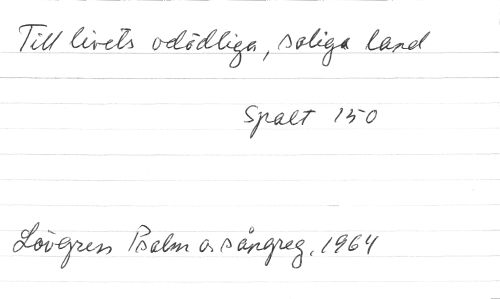 Till livets odödliga, saliga land
Spalt 150
Lövgren Psalm o sångreg. 1964